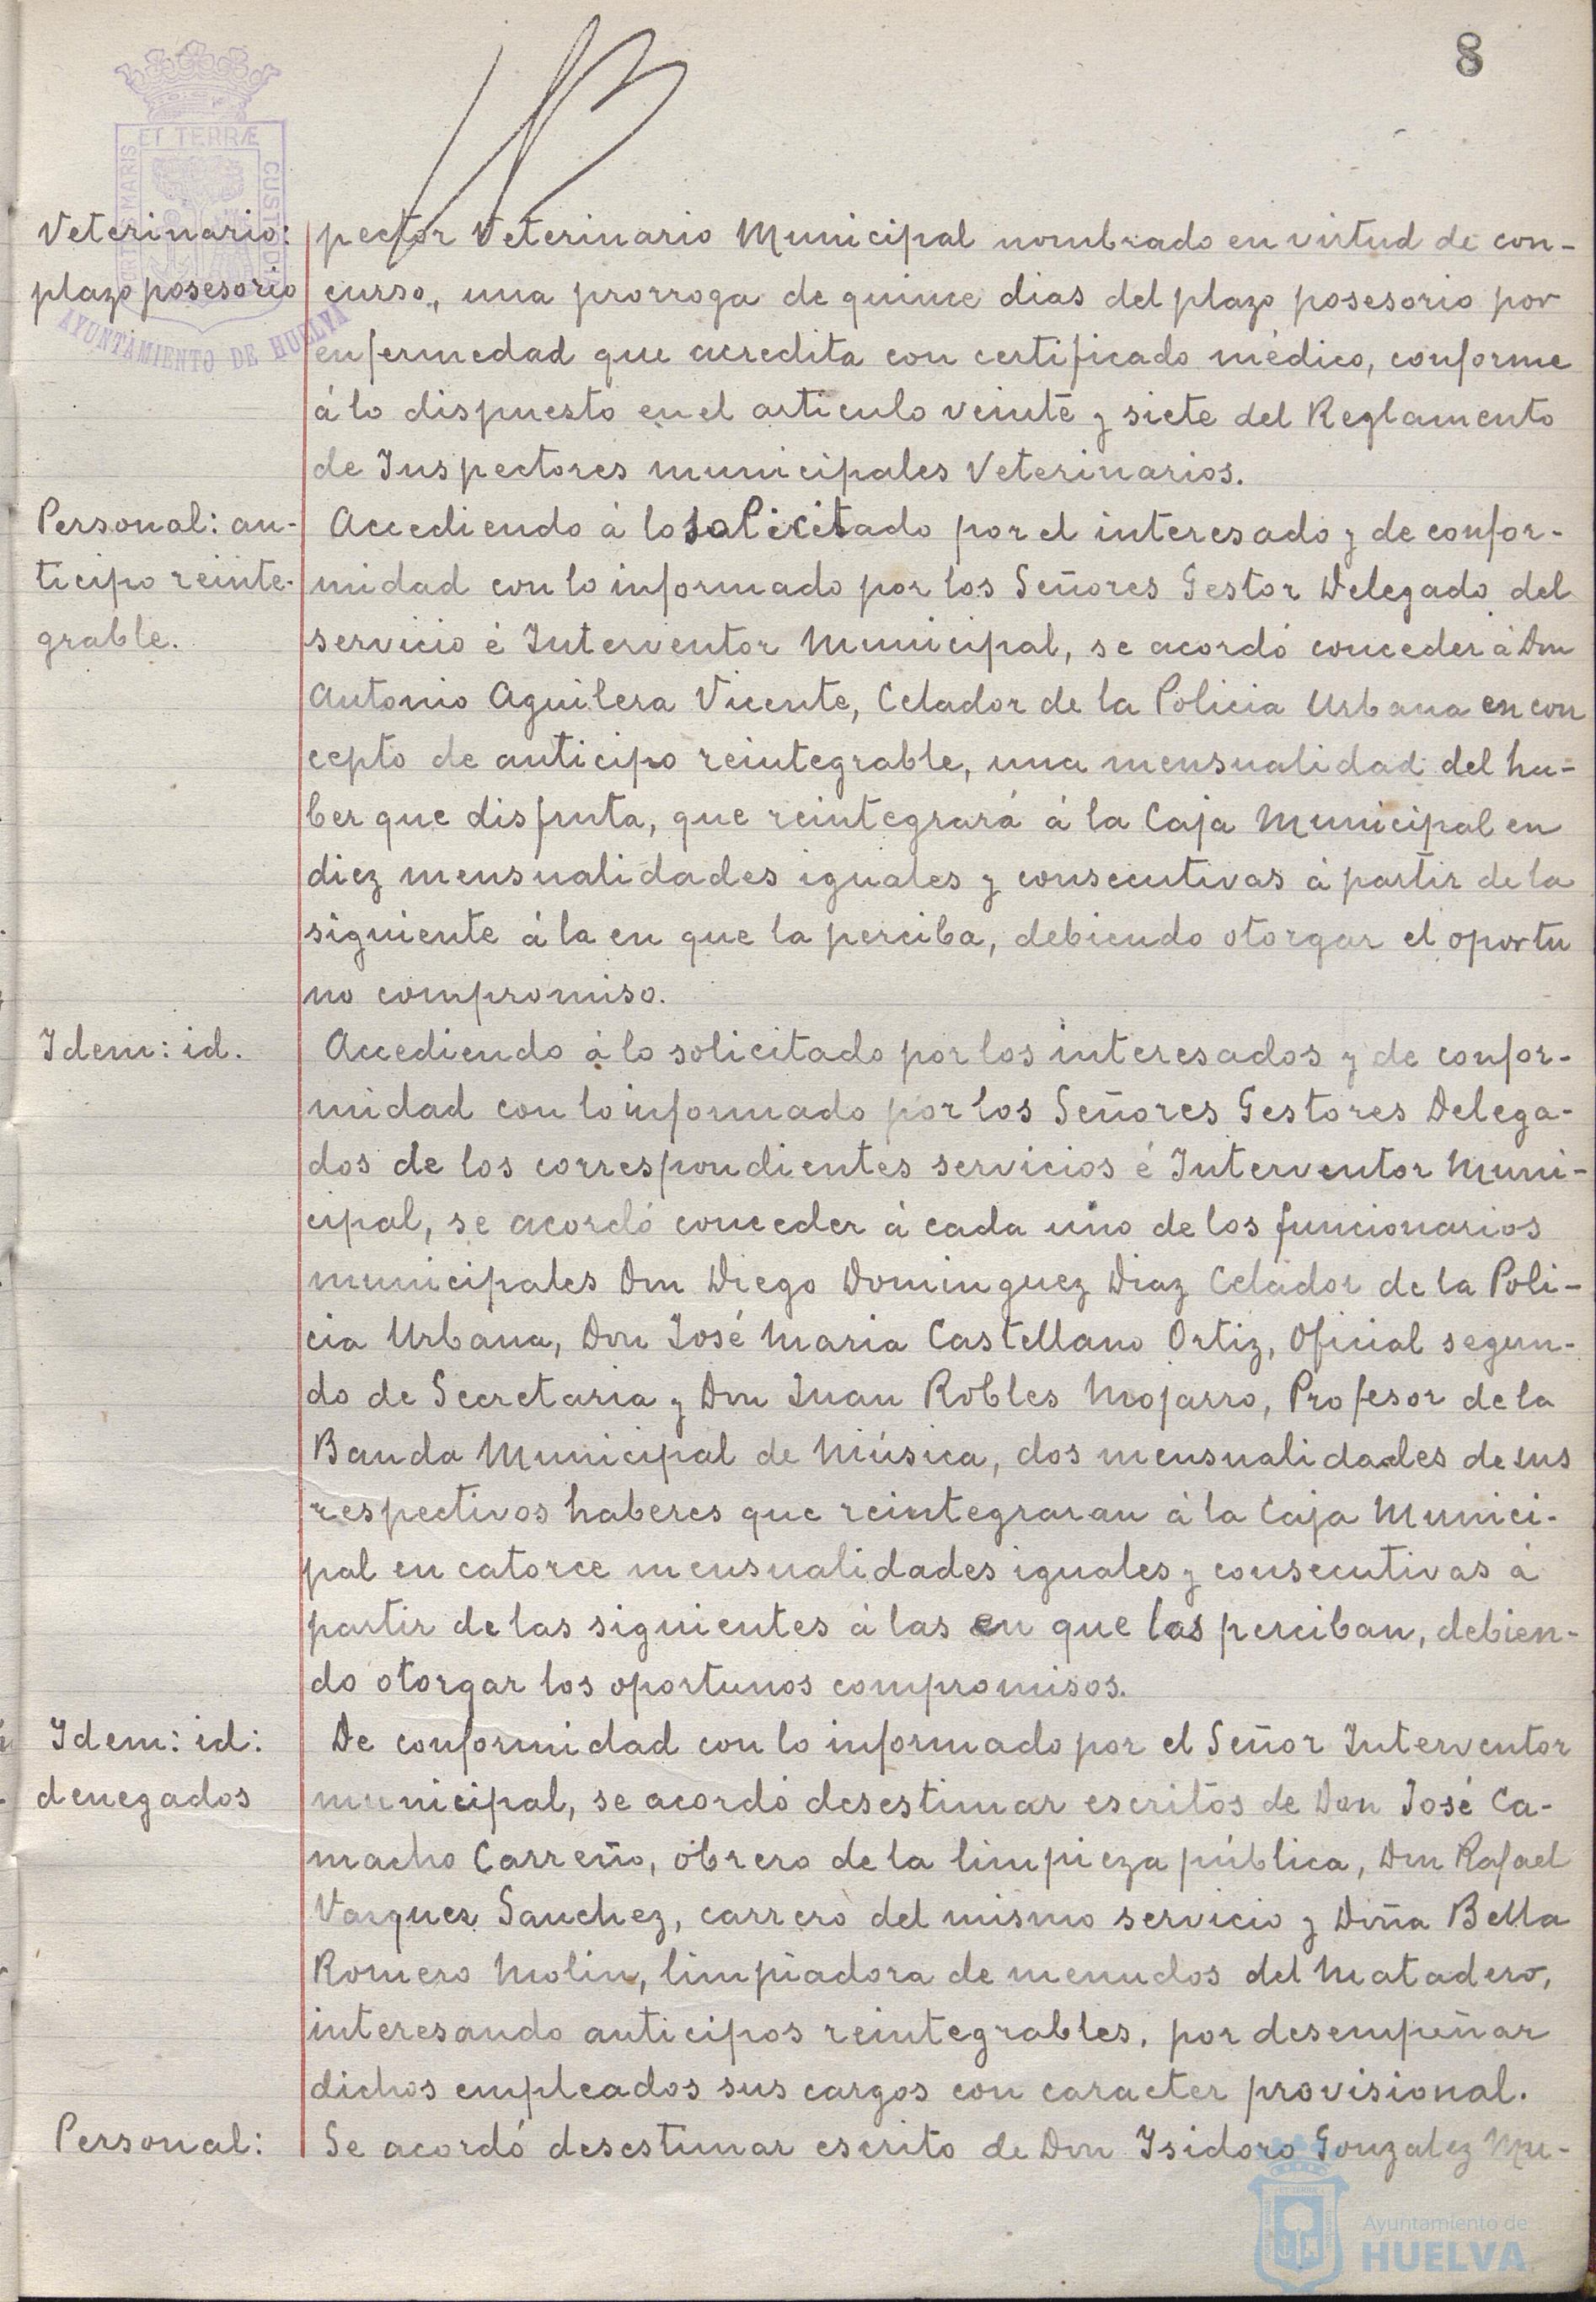 8
ET TERRÆ
CUSTODIA
AYUNTAMIENTO DE HUELVA
Veterinario:
plazo posesorio
pector Veterinario Municipal nombrado en virtud de con-
curso, una prorroga de quince dias del plazo posesorio por
enfermedad que acredita con certificado médico, conforme
á lo dispuesto en el articulo veinte y siete del Reglamento
de Inspectores municipales Veterinarios.
Personal: an-
ticipo reinte-
grable.
Accediendo á lo solicitado por el interesado y de confor-
midad con lo informado por los Señores Gestor Delegado del
servicio é Interventor Municipal, se acordó conceder á Don
Antonio Aguilera Vicente, Celador de la Policia Urbana en con
cepto de anticipo reintegrable, una mensualidad del ha-
ber que disfruta, que reintegrará á la Caja Municipal en
diez mensualidades iguales y consecutivas á partir de la
siguiente á la en que la perciba, debiendo otorgar el oportu
no compromiso.
Idem: id.
Accediendo á lo solicitado por los interesados y de confor-
midad con lo informado por los Señores Gestores Delega-
dos de los correspondientes servicios é Interventor Muni-
cipal, se acordó conceder á cada uno de los funcionarios
municipales Don Diego Dominguez Diaz Celador de la Poli-
cia Urbana, Don José Maria Castellano Ortiz, Oficial segun-
do de Secretaria y Don Juan Robles Mojarro, Profesor de la
Banda Municipal de Música, dos mensualidades de sus
respectivos haberes que reintegraran á la Caja Munici-
pal en catorce mensualidades iguales y consecutivas á
partir de las siguientes á las en que las perciban, debien-
do otorgar los oportunos compromisos.
Idem: id:
denegados
De conformidad con lo informado por el Señor Interventor
municipal, se acordó desestimar escritos de Don José Ca-
macho Carreño, obrero de la limpieza pública, Don Rafael
Vasquez Sanchez, carrero del mismo servicio y Doña Bella
Romero Molin, limpiadora de menudos del Matadero,
interesando anticipos reintegrables, por desempeñar
dichos empleados sus cargos con caracter provisional.
Personal:
Se acordó desestimar escrito de Don Isidoro Gonzalez Mu-
Ayuntamiento de
HUELVA